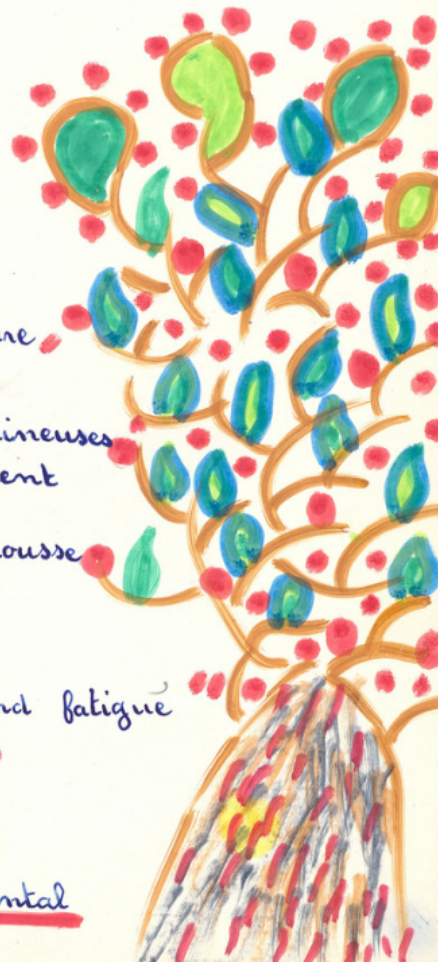 ineuses
ent
ousse
nd fatigué
ental